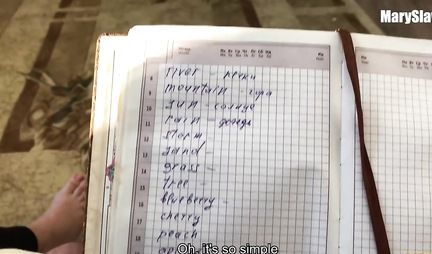 MarySla
8 river - реки
9 mountain - гора
10 sun - солнце
11 rain - дождь
12 storm
13 sand -
14 grass -
15 tree -
16 blueberry -
17 cherry
18 peach
Oh, it's so simple